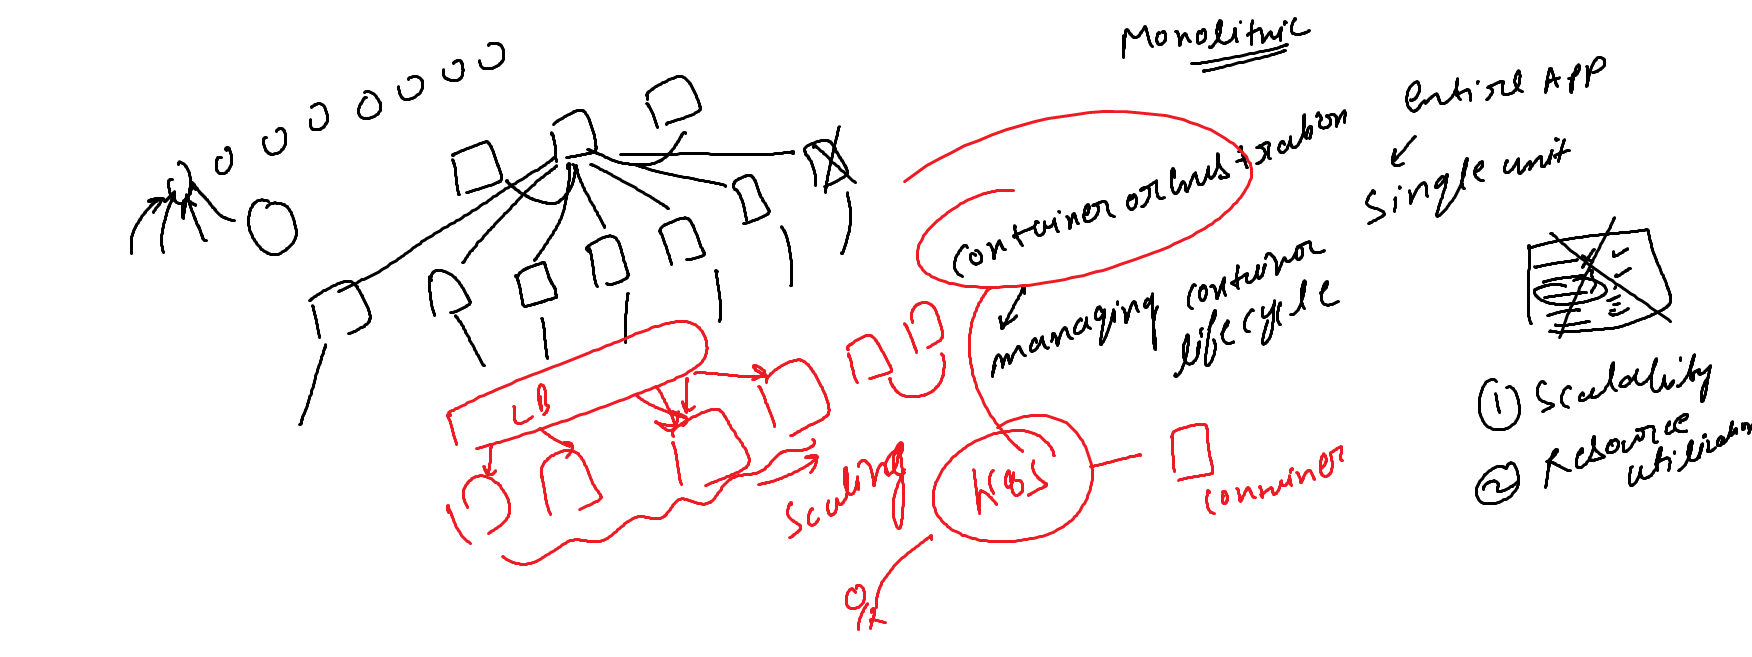 Monolithic
entire APP
single unit
container orchestration
managing container
lifecycle
LB
scaling
K8S
container
① Scalability
② Resource
utilization